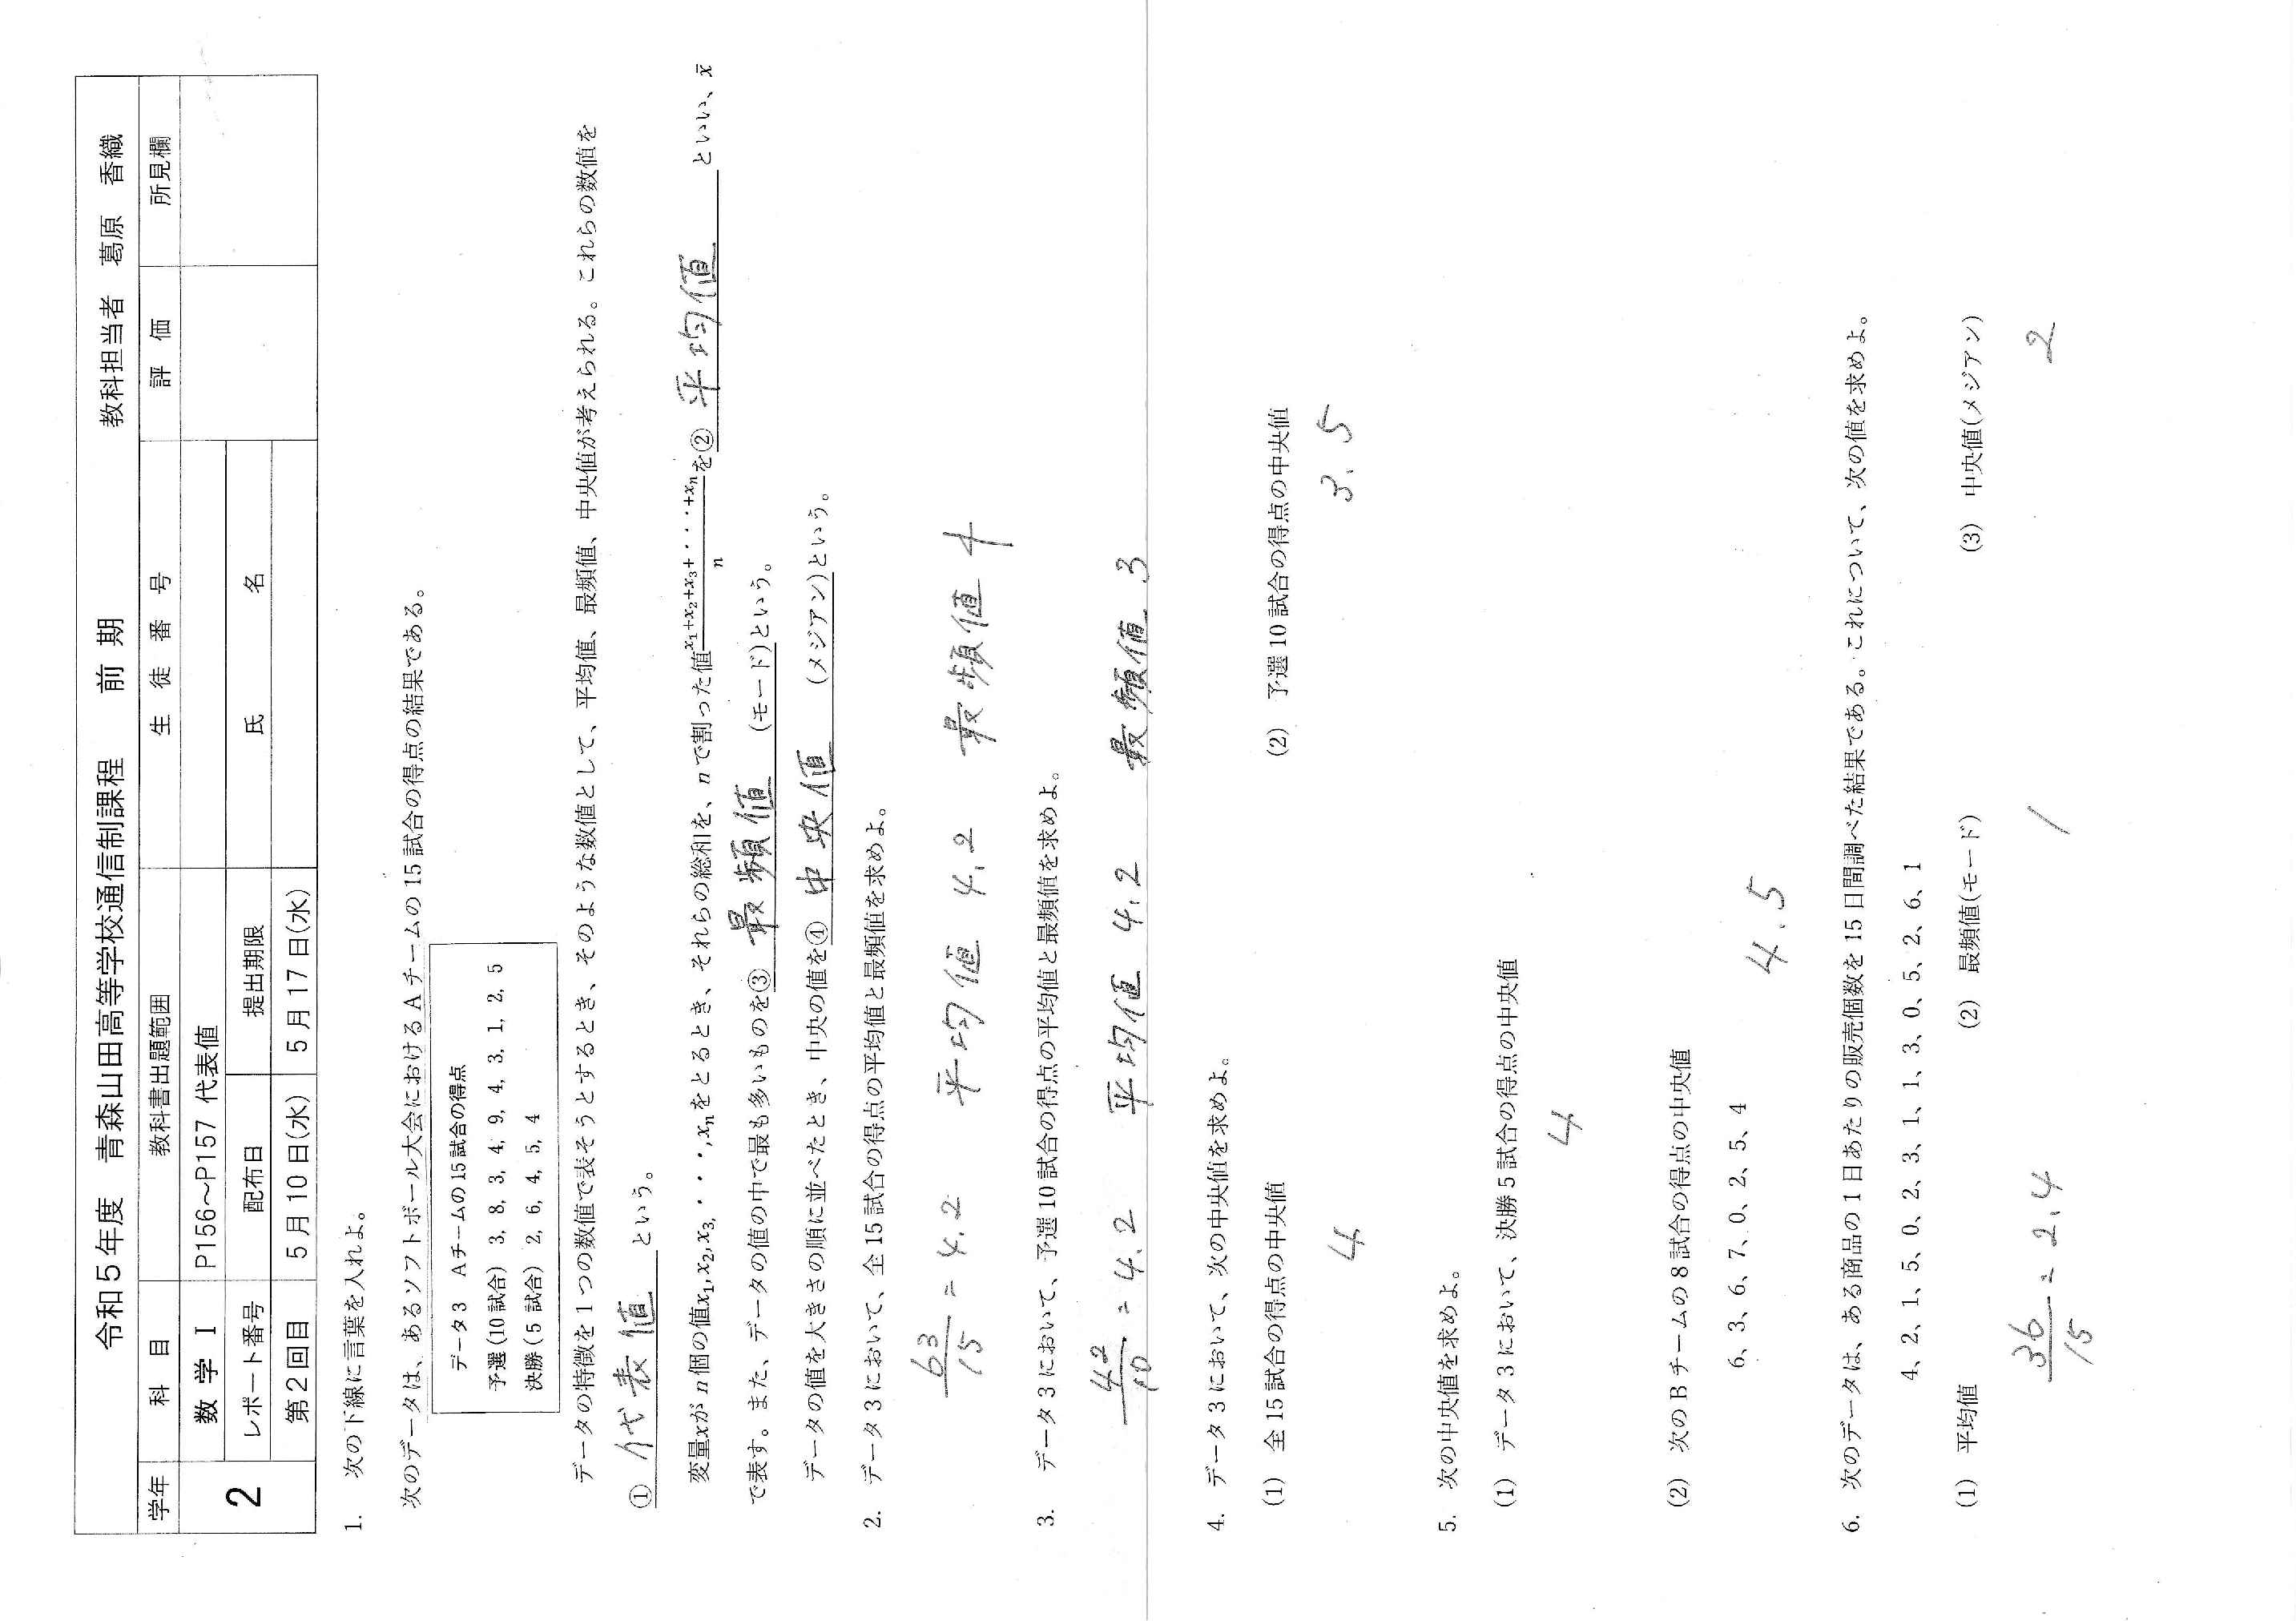 令和5年度 青森山田高等学校通信制課程 前期 教科担当者 葛原 香織
学年 科目 教科書出題範囲 生徒番号 評価 所見欄
2 数学 Ⅰ P156～P157 代表値
レポート番号 配布日 提出期限 氏 名
第2回目 5月10日(水) 5月17日(水)
1. 次の下線に言葉を入れよ。
次のデータは、あるソフトボール大会におけるAチームの15試合の得点の結果である。
データ3 Aチームの15試合の得点
予選(10試合) 3, 8, 3, 4, 9, 4, 3, 1, 2, 5
決勝(5 試合) 2, 6, 4, 5, 4
データの特徴を1つの数値で表そうとするとき、そのような数値として、平均値、最頻値、中央値が考えられる。これらの数値を
① 代表値 という。
変量xがn個の値x₁,x₂,x₃,・・・,xₙをとるとき、それらの総和を、nで割った値(x₁+x₂+x₃+・・・+xₙ)/nを② 平均値 といい、x̄
で表す。また、データの値の中で最も多いものを③ 最頻値 (モード)という。
データの値を大きさの順に並べたとき、中央の値を④ 中央値 (メジアン)という。
2. データ3において、全15試合の得点の平均値と最頻値を求めよ。
63/15 = 4.2 平均値 4.2 最頻値 4
3. データ3において、予選10試合の得点の平均値と最頻値を求めよ。
42/10 = 4.2 平均値 4.2 最頻値 3
4. データ3において、次の中央値を求めよ。
(1) 全15試合の得点の中央値 (2) 予選10試合の得点の中央値
4 3.5
5. 次の中央値を求めよ。
(1) データ3において、決勝5試合の得点の中央値
4
(2) 次のBチームの8試合の得点の中央値
6、3、6、7、0、2、5、4
4.5
6. 次のデータは、ある商品の1日あたりの販売個数を15日間調べた結果である。これについて、次の値を求めよ。
4、2、1、5、0、2、3、1、1、3、0、5、2、6、1
(1) 平均値 (2) 最頻値(モード) (3) 中央値(メジアン)
36/15 = 2.4 1 2